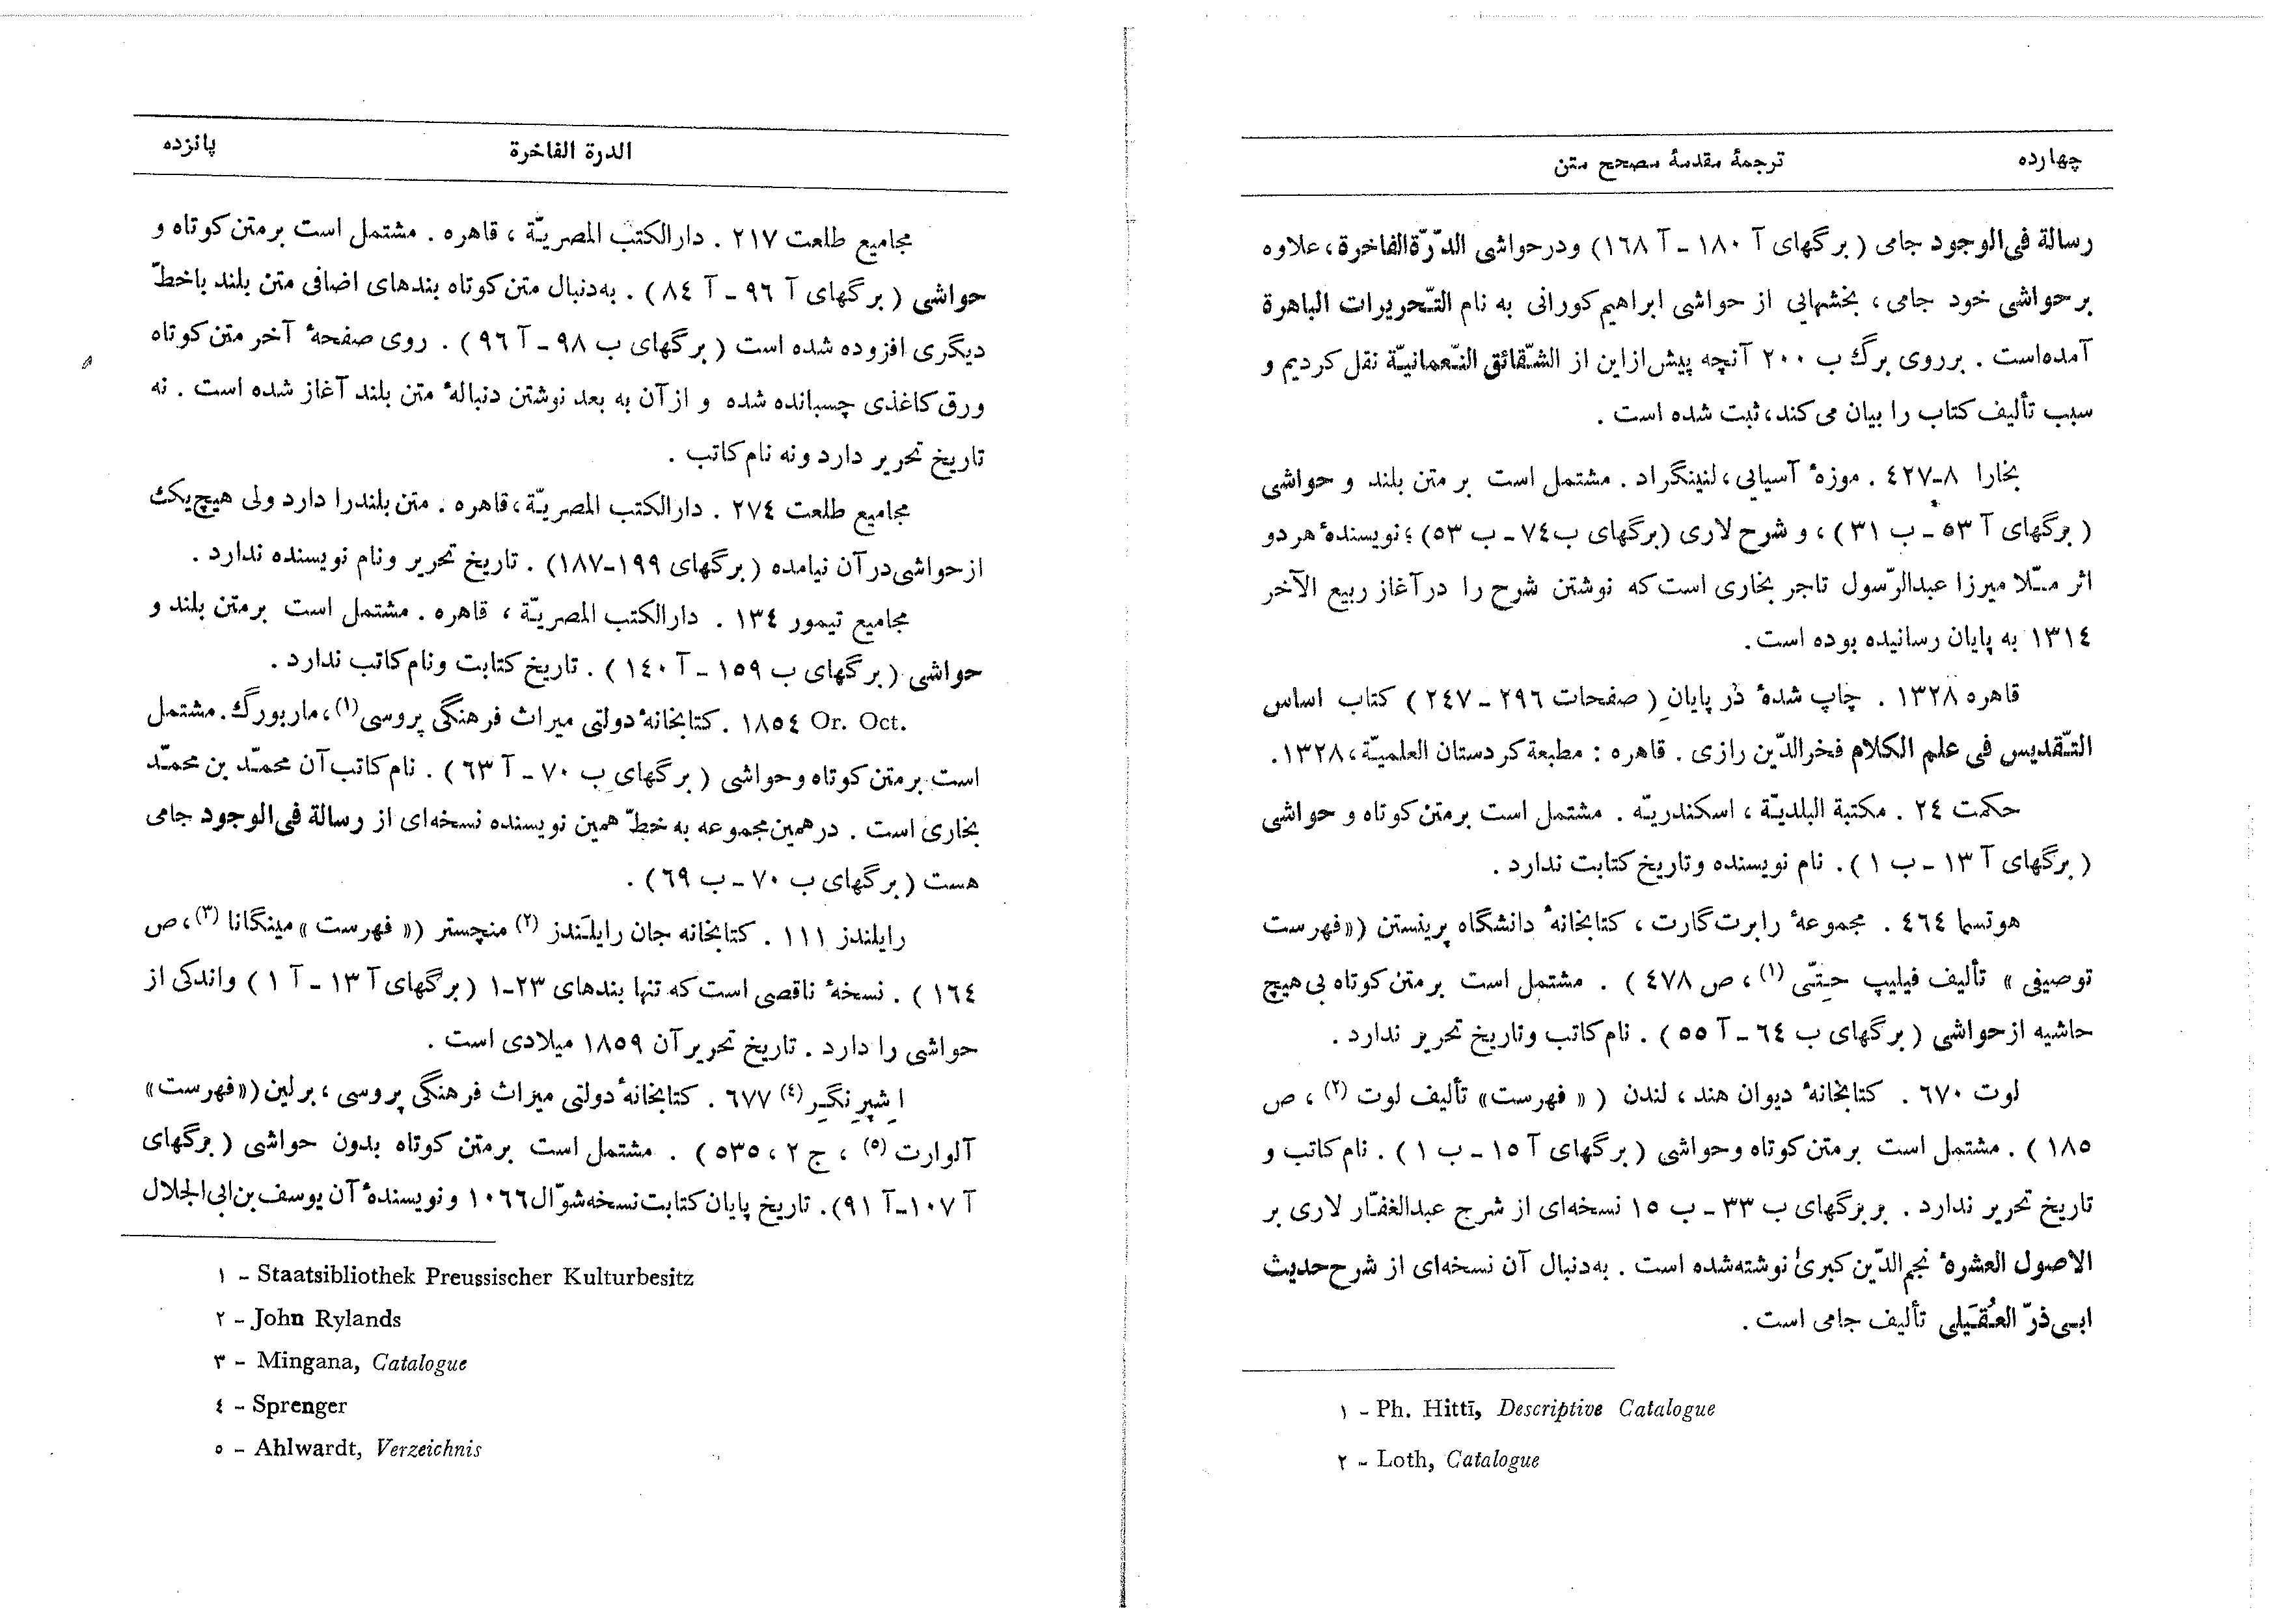 چهارده
ترجمهٔ مقدمهٔ مصحح متن
رسالة فی‌الوجود جامی ( برگهای آ ١٨٠ ـ آ ١٦٨) ودرحواشی الدّرّةالفاخرة، علاوه
بر حواشی خود جامی، بخشهایی از حواشی ابراهیم کورانی به نام التّحریرات الباهرة
آمده‌است . بر روی برگ ب ٢٠٠ آنچه پیش‌ازاین از الشّقائق النّعمانیّة نقل کردیم و
سبب تألیف کتاب را بیان می‌کند، ثبت شده است .
بخارا ٨ـ٤٢٧ . موزهٔ آسیایی، لنینگراد . مشتمل است بر متن بلند و حواشی
( برگهای آ ٥٣ ـ ب ٣١ ) ، و شرح لاری (برگهای ب ٧٤ ـ ب ٥٣) ؛ نویسندهٔ هر دو
اثر ملّا میرزا عبدالرّسول تاجر بخاری است که نوشتن شرح را در آغاز ربیع الآخر
١٣١٤ به پایان رسانیده بوده است .
قاهره ١٣٢٨ . چاپ شدهٔ در پایانِ ( صفحات ٢٩٦ ـ ٢٤٧ ) کتاب اساس
التّقدیس فی علم الکلام فخرالدّین رازی . قاهره : مطبعة کردستان العلمیّة، ١٣٢٨ .
حکمت ٢٤ . مکتبة البلدیّة ، اسکندریّه . مشتمل است بر متن کوتاه و حواشی
( برگهای آ ١٣ ـ ب ١ ) . نام نویسنده و تاریخ کتابت ندارد .
هوتسما ٤٦٤ . مجموعهٔ رابرت گارت ، کتابخانهٔ دانشگاه پرینستن (« فهرست
توصیفی » تألیف فیلیپ حِتّی (١) ، ص ٤٧٨ ) . مشتمل است بر متن کوتاه بی هیچ
حاشیه از حواشی ( برگهای ب ٦٤ ـ آ ٥٥ ) . نام کاتب و تاریخ تحریر ندارد .
لوت ٦٧٠ . کتابخانهٔ دیوان هند ، لندن ( « فهرست» تألیف لوت (٢) ، ص
١٨٥ ) . مشتمل است بر متن کوتاه و حواشی ( برگهای آ ١٥ ـ ب ١ ) . نام کاتب و
تاریخ تحریر ندارد . بر برگهای ب ٣٣ ـ ب ١٥ نسخه‌ای از شرح عبدالغفّار لاری بر
الاصول العشرهٔ نجم‌الدّین کبریٰ نوشته شده است . به‌دنبال آن نسخه‌ای از شرح حدیث
ابـی‌ذرّ العُقَیلی تألیف جامی است .
١ - Ph. Hittī, Descriptive Catalogue
٢ - Loth, Catalogue
الدرة الفاخرة
پانزده
مجامیع طلعت ٢١٧ . دارالکتب المصریّة ، قاهره . مشتمل است بر متن کوتاه و
حواشی ( برگهای آ ٩٦ ـ آ ٨٤ ) . به‌دنبال متن کوتاه بندهای اضافی متن بلند باخطّ
دیگری افزوده شده است ( برگهای ب ٩٨ ـ آ ٩٦ ) . روی صفحهٔ آخر متن کوتاه
ورق کاغذی چسبانده شده و از آن به بعد نوشتن دنبالهٔ متن بلند آغاز شده است . نه
تاریخ تحریر دارد و نه نام کاتب .
مجامیع طلعت ٢٧٤ . دارالکتب المصریّة ، قاهره . متن بلندرا دارد ولی هیچ‌یک
از حواشی در آن نیامده ( برگهای ١٩٩ـ١٨٧) . تاریخ تحریر و نام نویسنده ندارد .
مجامیع تیمور ١٣٤ . دارالکتب المصریّة ، قاهره . مشتمل است بر متن بلند و
حواشی ( برگهای ب ١٥٩ ـ آ ١٤٠ ) . تاریخ کتابت و نام کاتب ندارد .
Or. Oct. ١٨٥٤ . کتابخانهٔ دولتی میراث فرهنگی پروسی(١)، ماربورگ . مشتمل
است بر متن کوتاه و حواشی ( برگهای ب ٧٠ ـ آ ٦٣ ) . نام کاتب آن محمّد بن محمّد
بخاری است . در همین مجموعه به خطّ همین نویسنده نسخه‌ای از رسالة فی‌الوجود جامی
هست ( برگهای ب ٧٠ ـ ب ٦٩ ) .
رایلندز ١١١ . کتابخانه جان رایلَندز (٢) منچستر (« فهرست » مینگانا (٣)، ص
١٦٤ ) . نسخهٔ ناقصی است که تنها بندهای ٢٣ـ١ ( برگهای آ ١٣ ـ آ ١ ) واندکی از
حواشی را دارد . تاریخ تحریر آن ١٨٥٩ میلادی است .
اِشپرِنگِـر(٤) ٦٧٧ . کتابخانهٔ دولتی میراث فرهنگی پروسی ، برلین («فهرست»
آلوارت (٥) ، ج ٢ ، ٥٣٥ ) . مشتمل است بر متن کوتاه بدون حواشی ( برگهای
آ ١٠٧ـ آ ٩١) . تاریخ پایان کتابت نسخه شوّال ١٠٦٦ و نویسندهٔ آن یوسف بن‌ابی‌الجلال
١ - Staatsibliothek Preussischer Kulturbesitz
٢ - John Rylands
٣ - Mingana, Catalogue
٤ - Sprenger
٥ - Ahlwardt, Verzeichnis